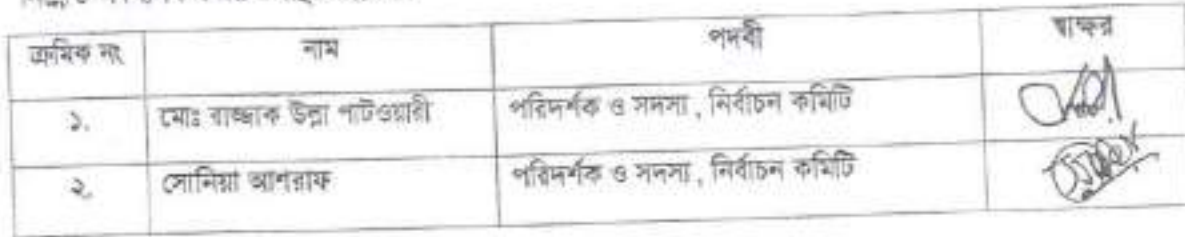 ক্রমিক নং নাম পদবী স্বাক্ষর
১. মোঃ রাজ্জাক উল্লা পাটওয়ারী পরিদর্শক ও সদস্য , নির্বাচন কমিটি
২. সোনিয়া আশরাফ পরিদর্শক ও সদস্য , নির্বাচন কমিটি